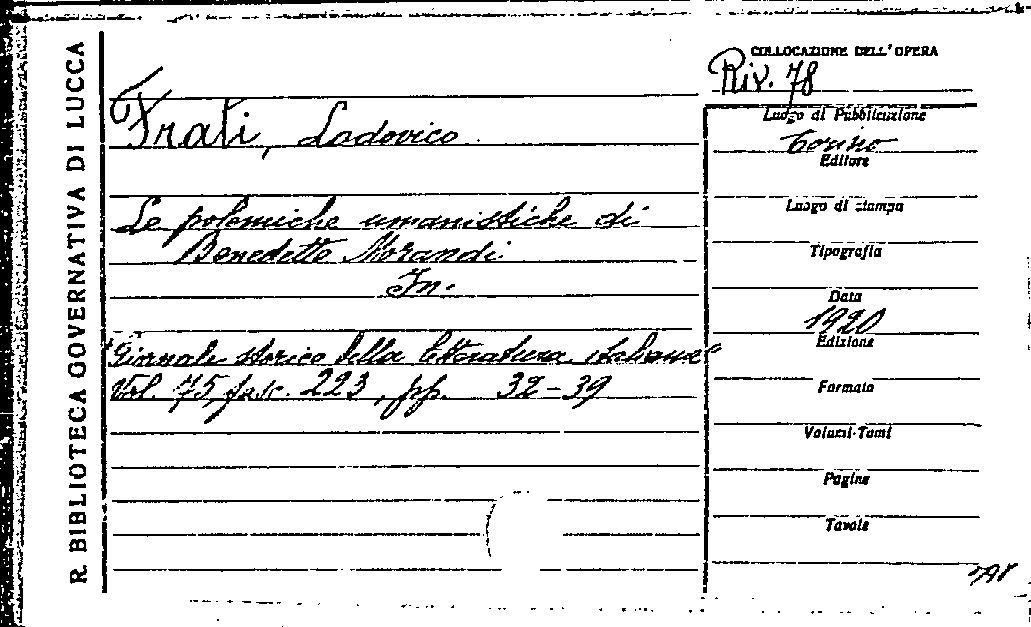 R. BIBLIOTECA GOVERNATIVA DI LUCCA
COLLOCAZIONE DELL' OPERA
Riv. 78
Frati, Lodovico
Le polemiche umanistiche di
Benedetto Morandi.
In.
"Giornale storico della letteratura italiana"
Vol. 75, fasc. 223, pp. 32-39
Luogo di Pubblicazione
Torino
Editore
Luogo di stampa
Tipografia
Data
1920
Edizione
Formato
Volumi-Tomi
Pagine
Tavole